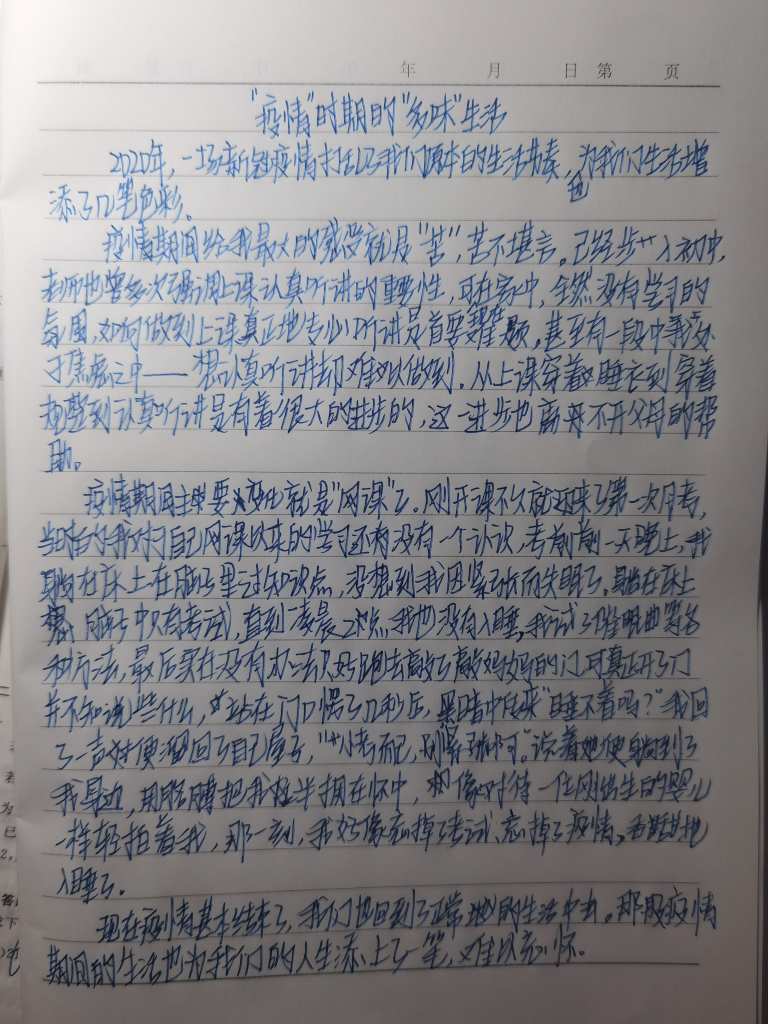 年 月 日 第 页
"疫情"时期的"多味"生活
2020年,一场新冠疫情打乱了我们原本的生活节奏,也为我们生活增
添了几笔色彩。
疫情期间给我最大的感受就是"苦",苦不堪言。已经步入初中,
老师也曾多次强调上课认真听讲的重要性,可在家中,全然没有学习的
氛围,如何做到上课真正地专心听讲是首要难题,甚至有一段中我处
于焦虑之中——想认真听讲却难以做到。从上课穿着睡衣到穿着
规整到认真听讲是有着很大的进步的,这一进步也离不开父母的帮
助。
疫情期间主要变化就是"网课"了。刚开课不久就迎来了第一次月考,
当时的我对自己网课以来的学习还没有一个认识,考前前一天晚上,我
躺在床上在脑子里过知识点,没想到我因紧张而失眠了,躺在床上
脑子中只有考试,直到凌晨2点,我也没有入睡,我试了催眠曲等各
种方法,最后实在没有办法只好跑去敲了敲妈妈的门,可真正开了门
并不知说些什么,站在门口愣了几秒后,黑暗中传来"睡不着吗?"我回
了一声 便溜回了自己屋子,"小考而已,别紧张啊。"说着她便躺到了
我身边,用胳膊把我 半拥在怀中,像对待一位刚出生的婴儿
一样轻拍着我,那一刻,我好像忘掉了考试、忘掉了疫情,香甜地
入睡了。
现在疫情基本结束了,我们也回到了正常的生活中去。那段疫情
期间的生活也为我们的人生添上了一笔,难以忘怀。